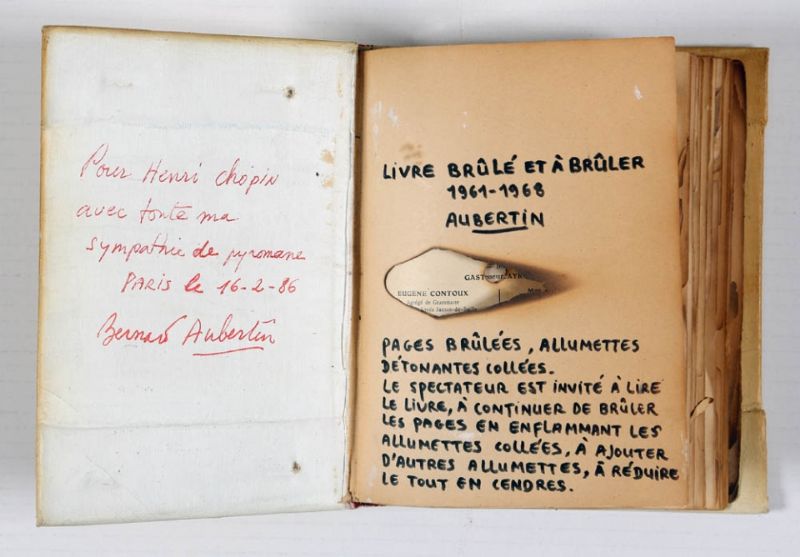 Pour Henri Chopin
avec toute ma
sympathie de pyromane
PARIS le 16-2-86
Bernard Aubertin
LIVRE BRÛLÉ ET À BRÛLER
1961-1968
AUBERTIN
EUGÈNE CONTOUX
Agrégé de Grammaire
PAGES BRÛLÉES, ALLUMETTES
DÉTONANTES COLLÉES.
LE SPECTATEUR EST INVITÉ À LIRE
LE LIVRE, À CONTINUER DE BRÛLER
LES PAGES EN ENFLAMMANT LES
ALLUMETTES COLLÉES, À AJOUTER
D'AUTRES ALLUMETTES, À RÉDUIRE
LE TOUT EN CENDRES.